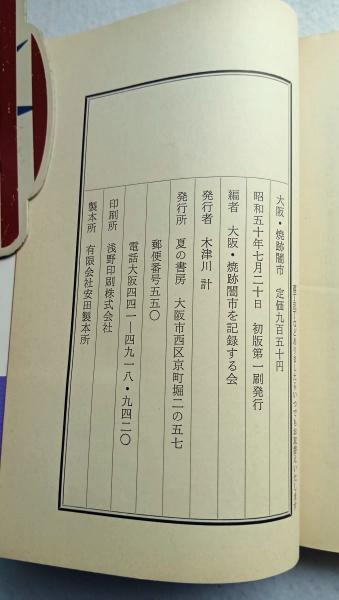 大阪・焼跡闇市　定価九百五十円
昭和五十年七月二十日　初版第一刷発行
編者　大阪・焼跡闇市を記録する会
発行者　木津川 計
発行所　夏の書房　大阪市西区京町堀二の五七
郵便番号五五〇
電話大阪四四一―四九一八・九四二〇
印刷所　浅野印刷株式会社
製本所　有限会社安田製本所